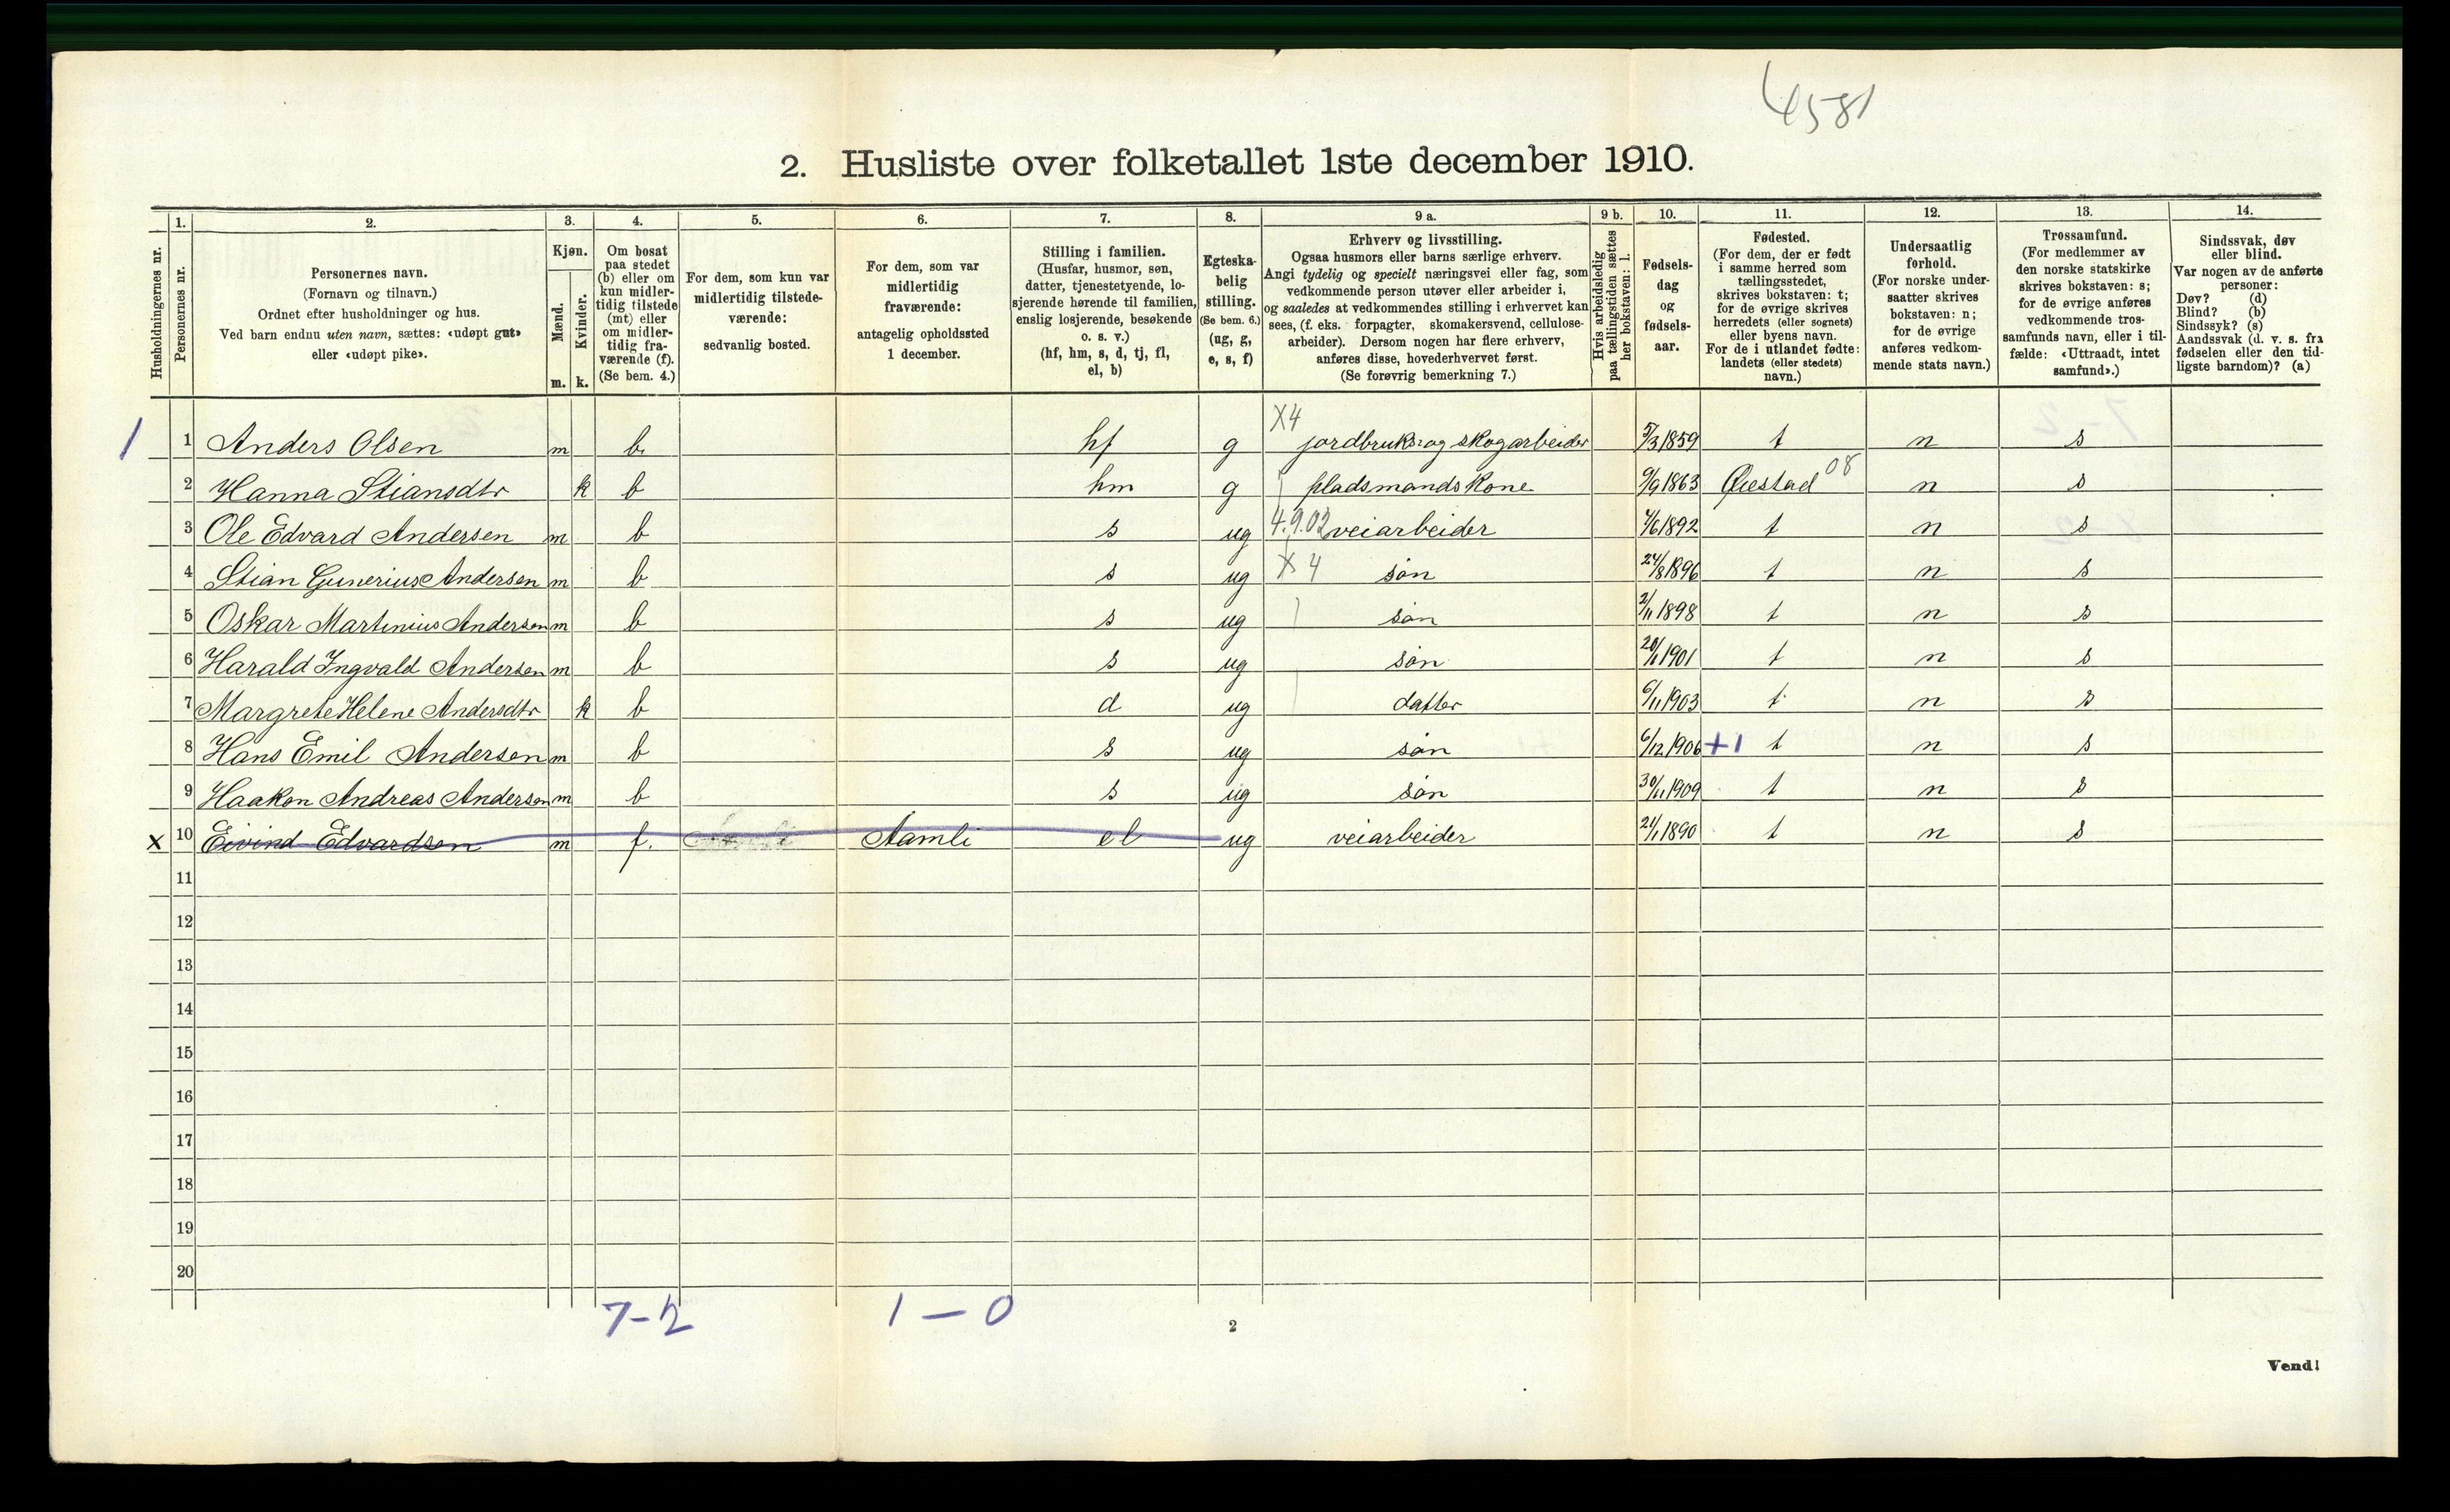 4581
2. Husliste over folketallet 1ste december 1910.
Husholdningernes nr.
1.
Personernes nr.
2.
Personernes navn.
(Fornavn og tilnavn.)
Ordnet efter husholdninger og hus.
Ved barn endnu uten navn, sættes: «udøpt gut»
eller «udøpt pike».
3.
Kjøn.
Mænd.
Kvinder.
m. k.
4.
Om bosat
paa stedet
(b) eller om
kun midler-
tidig tilstede
(mt) eller
om midler-
tidig fra-
værende (f).
(Se bem. 4.)
5.
For dem, som kun var
midlertidig tilstede-
værende:
sedvanlig bosted.
6.
For dem, som var
midlertidig
fraværende:
antagelig opholdssted
1 december.
7.
Stilling i familien.
(Husfar, husmor, søn,
datter, tjenestetyende, lo-
sjerende hørende til familien,
enslig losjerende, besøkende
o. s. v.)
(hf, hm, s, d, tj, fl,
el, b)
8.
Egteska-
belig
stilling.
(Se bem. 6.)
(ug, g,
e, s, f)
9 a.
Erhverv og livsstilling.
Ogsaa husmors eller barns særlige erhverv.
Angi tydelig og specielt næringsvei eller fag, som
vedkommende person utøver eller arbeider i,
og saaledes at vedkommendes stilling i erhvervet kan
sees, (f. eks. forpagter, skomakersvend, cellulose-
arbeider). Dersom nogen har flere erhverv,
anføres disse, hovederhvervet først.
(Se forøvrig bemerkning 7.)
9 b.
Hvis arbeidsledig
paa tællingstiden sættes
her bokstaven: l.
10.
Fødsels-
dag
og
fødsels-
aar.
11.
Fødested.
(For dem, der er født
i samme herred som
tællingsstedet,
skrives bokstaven: t;
for de øvrige skrives
herredets (eller sognets)
eller byens navn.
For de i utlandet fødte:
landets (eller stedets)
navn.)
12.
Undersaatlig
forhold.
(For norske under-
saatter skrives
bokstaven: n;
for de øvrige
anføres vedkom-
mende stats navn.)
13.
Trossamfund.
(For medlemmer av
den norske statskirke
skrives bokstaven: s;
for de øvrige anføres
vedkommende tros-
samfunds navn, eller i til-
fælde: «Uttraadt, intet
samfund».)
14.
Sindssvak, døv
eller blind.
Var nogen av de anførte
personer:
Døv? (d)
Blind? (b)
Sindssyk? (s)
Aandssvak (d. v. s. fra
fødselen eller den tid-
ligste barndom)? (a)
X4
1 1 Anders Olsen m b. hf g jordbruks og skogarbeider 5/3 1859 t n s
2 Hanna Stiansdtr k b hm g pladsmandskone 9/9 1863 Øiestad 08 n s
3 Ole Edvard Andersen m b s ug 4.9.02 veiarbeider 4/6 1892 t n s
4 Stian Gunerius Andersen m b s ug X 4 søn 24/8 1896 t n s
5 Oskar Martinius Andersen m b s ug søn 2/11 1898 t n s
6 Harald Ingvald Andersen m b s ug søn 1901 t n s
7 Margrete Helene Andersdtr k b d ug datter 6/11 1903 t n s
8 Hans Emil Andersen m b s ug søn 6/12 1906 +1 t n s
9 Haakon Andreas Andersen m b s ug søn 30/11 1909 t n s
x 10 Eivind Edvardsen m f. Aamli el ug veiarbeider 24/1 1890 t n s
11
12
13
14
15
16
17
18
19
20
7-2 1-0
2
Vend!